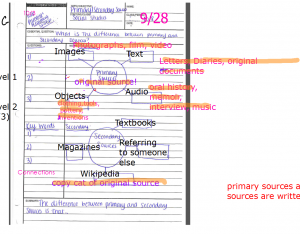 Primary/Secondary Sources
Social Studies
9/28
C
What is the difference between primary and
Secondary Sources?
Photographs, film, video
Images
Text
Letters, Diaries, original
documents
Primary
Source
original source!
oral history,
memoir,
interview music
Audio
Objects
clothing, tools,
pottery,
inventions
vel 1
vel 2
3)
Key Words
Secondary
Textbooks
Secondary
Sources
Magazines
Referring
to someone
else
Wikipedia
Connections
copy cat of original source
primary sources a
sources are writte
The difference between primary and secondary
Sources is that